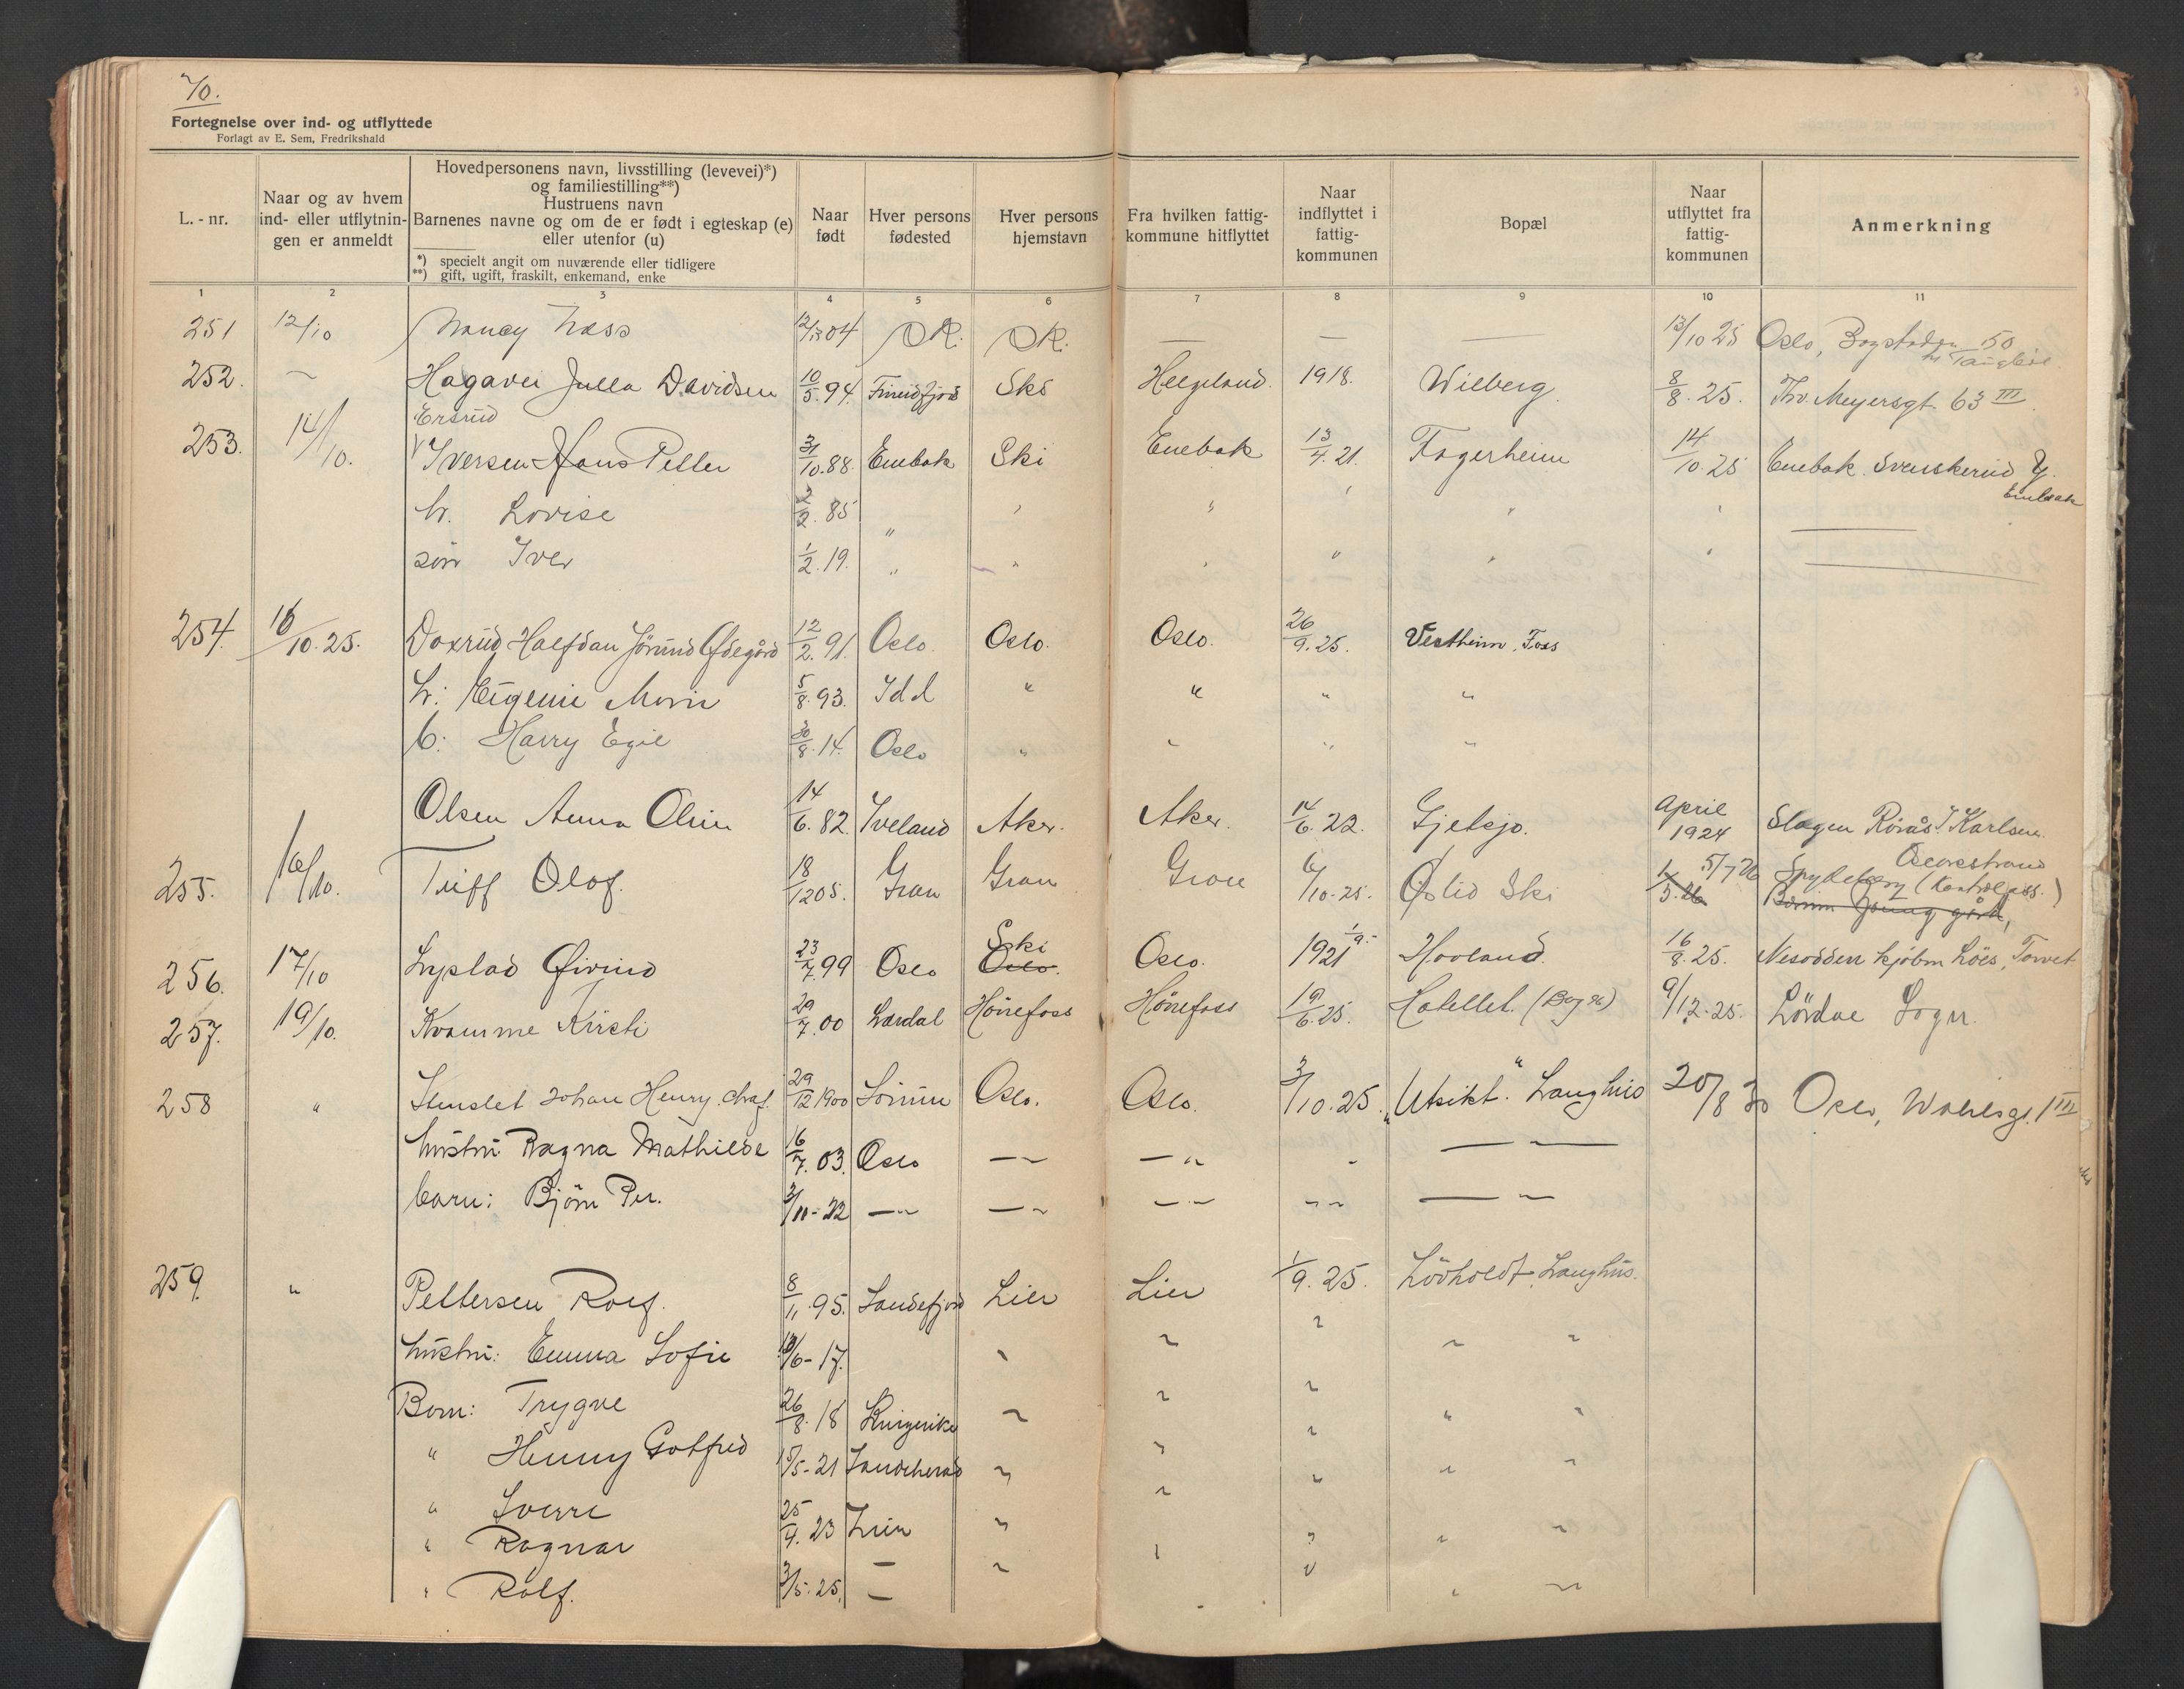 70.
Fortegnelse over ind- og utflyttede
Forlagt av E. Sem, Fredrikshald
L. - nr.
Naar og av hvem
ind- eller utflytnin-
gen er anmeldt
Hovedpersonens navn, livsstilling (levevei)*)
og familiestilling**)
Hustruens navn
Barnenes navne og om de er født i egteskap (e)
eller utenfor (u)
*) specielt angit om nuværende eller tidligere
**) gift, ugift, fraskilt, enkemand, enke
Naar
født
Hver persons
fødested
Hver persons
hjemstavn
Fra hvilken fattig-
kommune hitflyttet
Naar
indflyttet i
fattig-
kommunen
Bopæl
Naar
utflyttet fra
fattig-
kommunen
Anmerkning
1 2 3 4 5 6 7 8 9 10 11
251 12/10 Nancy Næss — — — 13/10 25 Oslo, 50
252. Davidsen 10/5.94. Ski 1918. Wilberg 8/8.25. Thv. Meyersgt. 63 III
Ersrud
253. 14/10. Iversen Hans Petter 31/10.88. Enebak Ski Enebak 13/4.21. Fagerheim 14/10.25 Enebak. Svenskerud Y.
Enebak
h. Lovise 2/2.85 " " " " " "
søn Iver 1/2.19. " " " " " "
254. 16/10.25. Doxrud, Halfdan Jörund Ödegård 12/2.91. Oslo. Oslo. Oslo. 26/9.25. Vestheim, Foss
h: Eugenie 5/8.93. Idd " " " "
b: Harry Egil 30/8.14. Oslo " " " "
Olsen Anna 14/6.82. Iveland Aker. Aker. 14/6.22. Gjetsjø. April
1924 Slagen Rørås Karlsen
255. 16/10. Olof 18/12 05. Gran Gran Gran 6/10-25. Østlid Ski 1/3.26 5/7 26
256. 17/10 Øivind 23/7.99 Oslo Oslo. Ski Oslo. 1921 1/9- Hovland. 16/8.25. Nesodden Torvet
257. 19/10. Kvamme Kirsti 29/7.00 Lærdal Hönefoss Hönefoss 19/6.25. Hotellet. 9/12.25. Lördal Sogn.
258 " Johan Henry 29/12 1900 Sörum Oslo. Oslo. 3/10.25. "Utsikt." Langhus 20/8 30 Oslo, 1 III
hustru Ragna Mathilde 6/7.03. Oslo —"— —"— " —"—
barn: Björn Per. 3/11-22 —"— —"— —"— "" —"—
259. " Pettersen Rolf. 8/11.95. Sandefjord Lier Lier 1/9.25. Lövholdt Langhus.
hustru: Emma Sofie /6-17. " " " " "
Barn: Trygve 26/8.18 Ringerike " " " " "
" Henny Gotfred 15/5-21 Sandeherad " " " " "
" Sverre 25/4.23 Lier " " " " "
" Ragnar — " " " "
" Rolf. 3/5.25. — " "